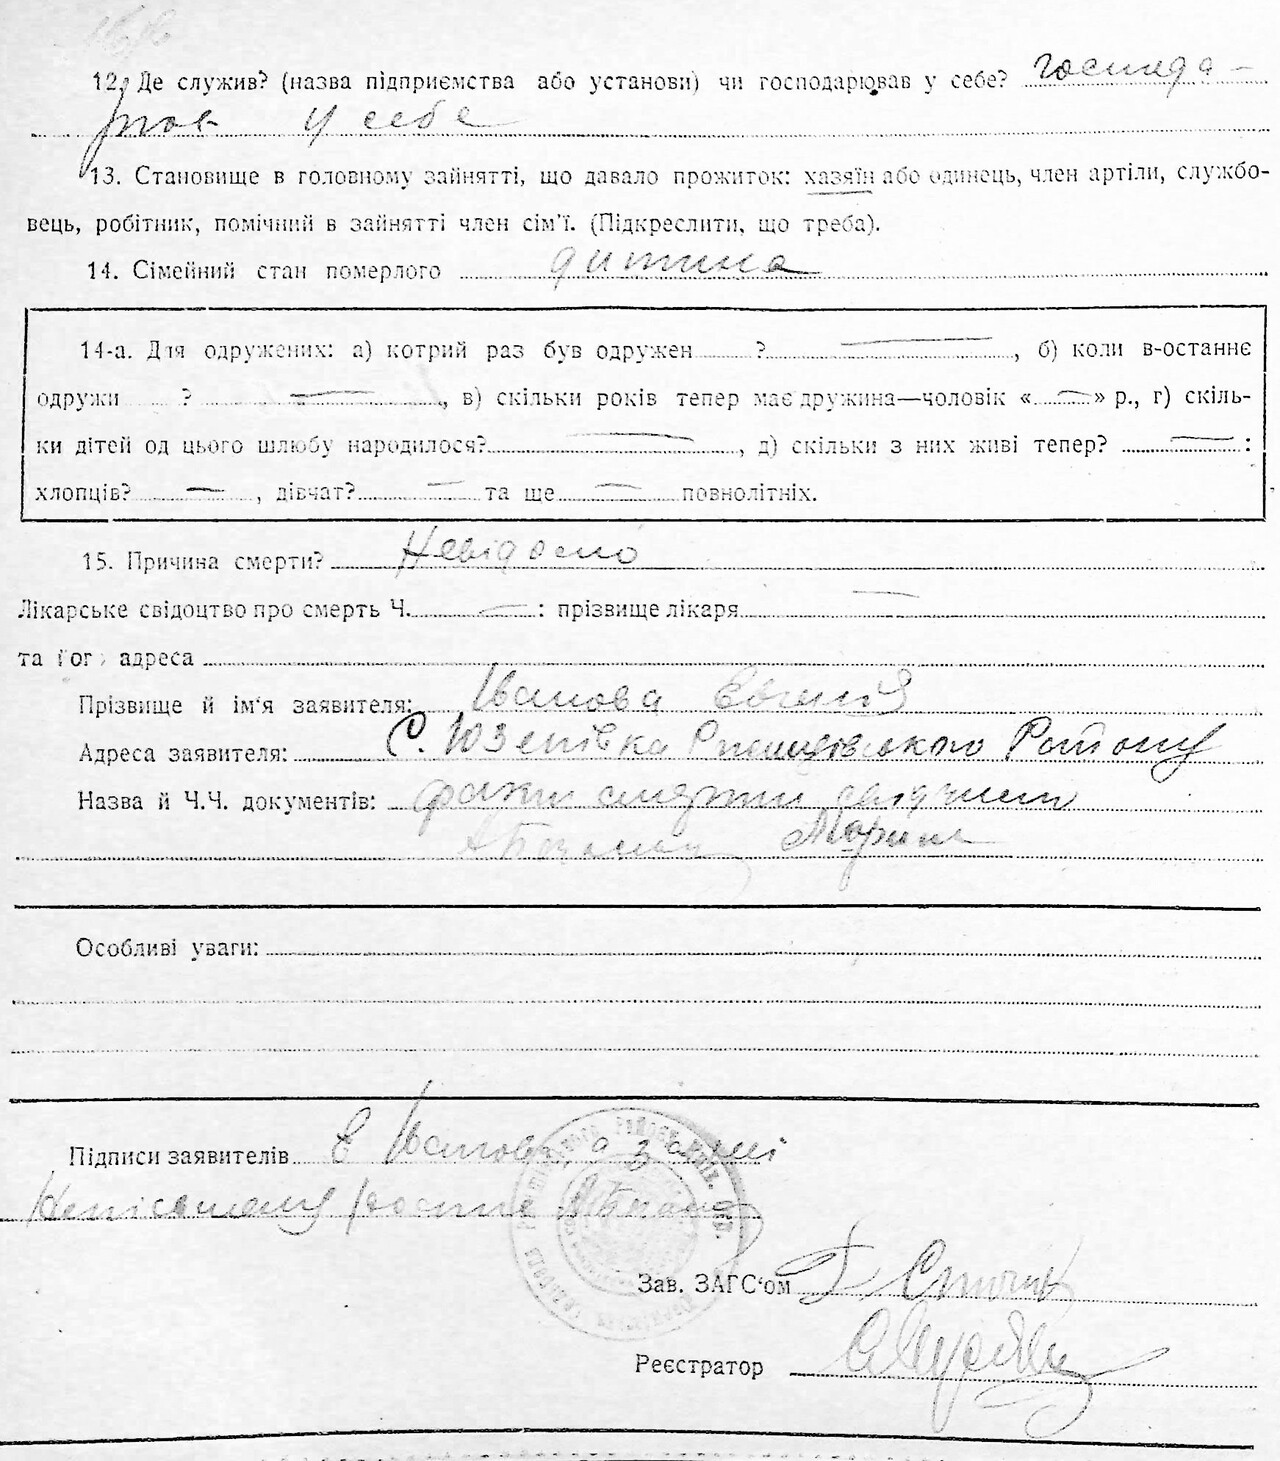 12. Де служив? (назва підприємства або установи) чи господарював у себе? господа-
рював у себе
13. Становище в головному зайнятті, що давало прожиток: хазяїн або одинець, член артіли, службо-
вець, робітник, помічний в зайнятті член сім'ї. (Підкреслити, що треба).
14. Сімейний стан померлого дитина
14-а. Для одружених: а) котрий раз був одружен ? —, б) коли в-останнє
одружи ? —, в) скільки років тепер має дружина—чоловік «—» р., г) скіль-
ки дітей од цього шлюбу народилося? —, д) скільки з них живі тепер? —:
хлопців? —, дівчат? — та ще — повнолітніх.
15. Причина смерти? Невідомо
Лікарське свідоцтво про смерть Ч. —: прізвище лікаря —
та його адреса
Прізвище й ім'я заявителя: Іванова Євгенія
Адреса заявителя: С. Юзепівка Району
Назва й Ч.Ч. документів: факт смерти
Марина
Особливі уваги:
Підписи заявителів Є Іванова, а за
Зав. ЗАГС'ом
Реєстратор